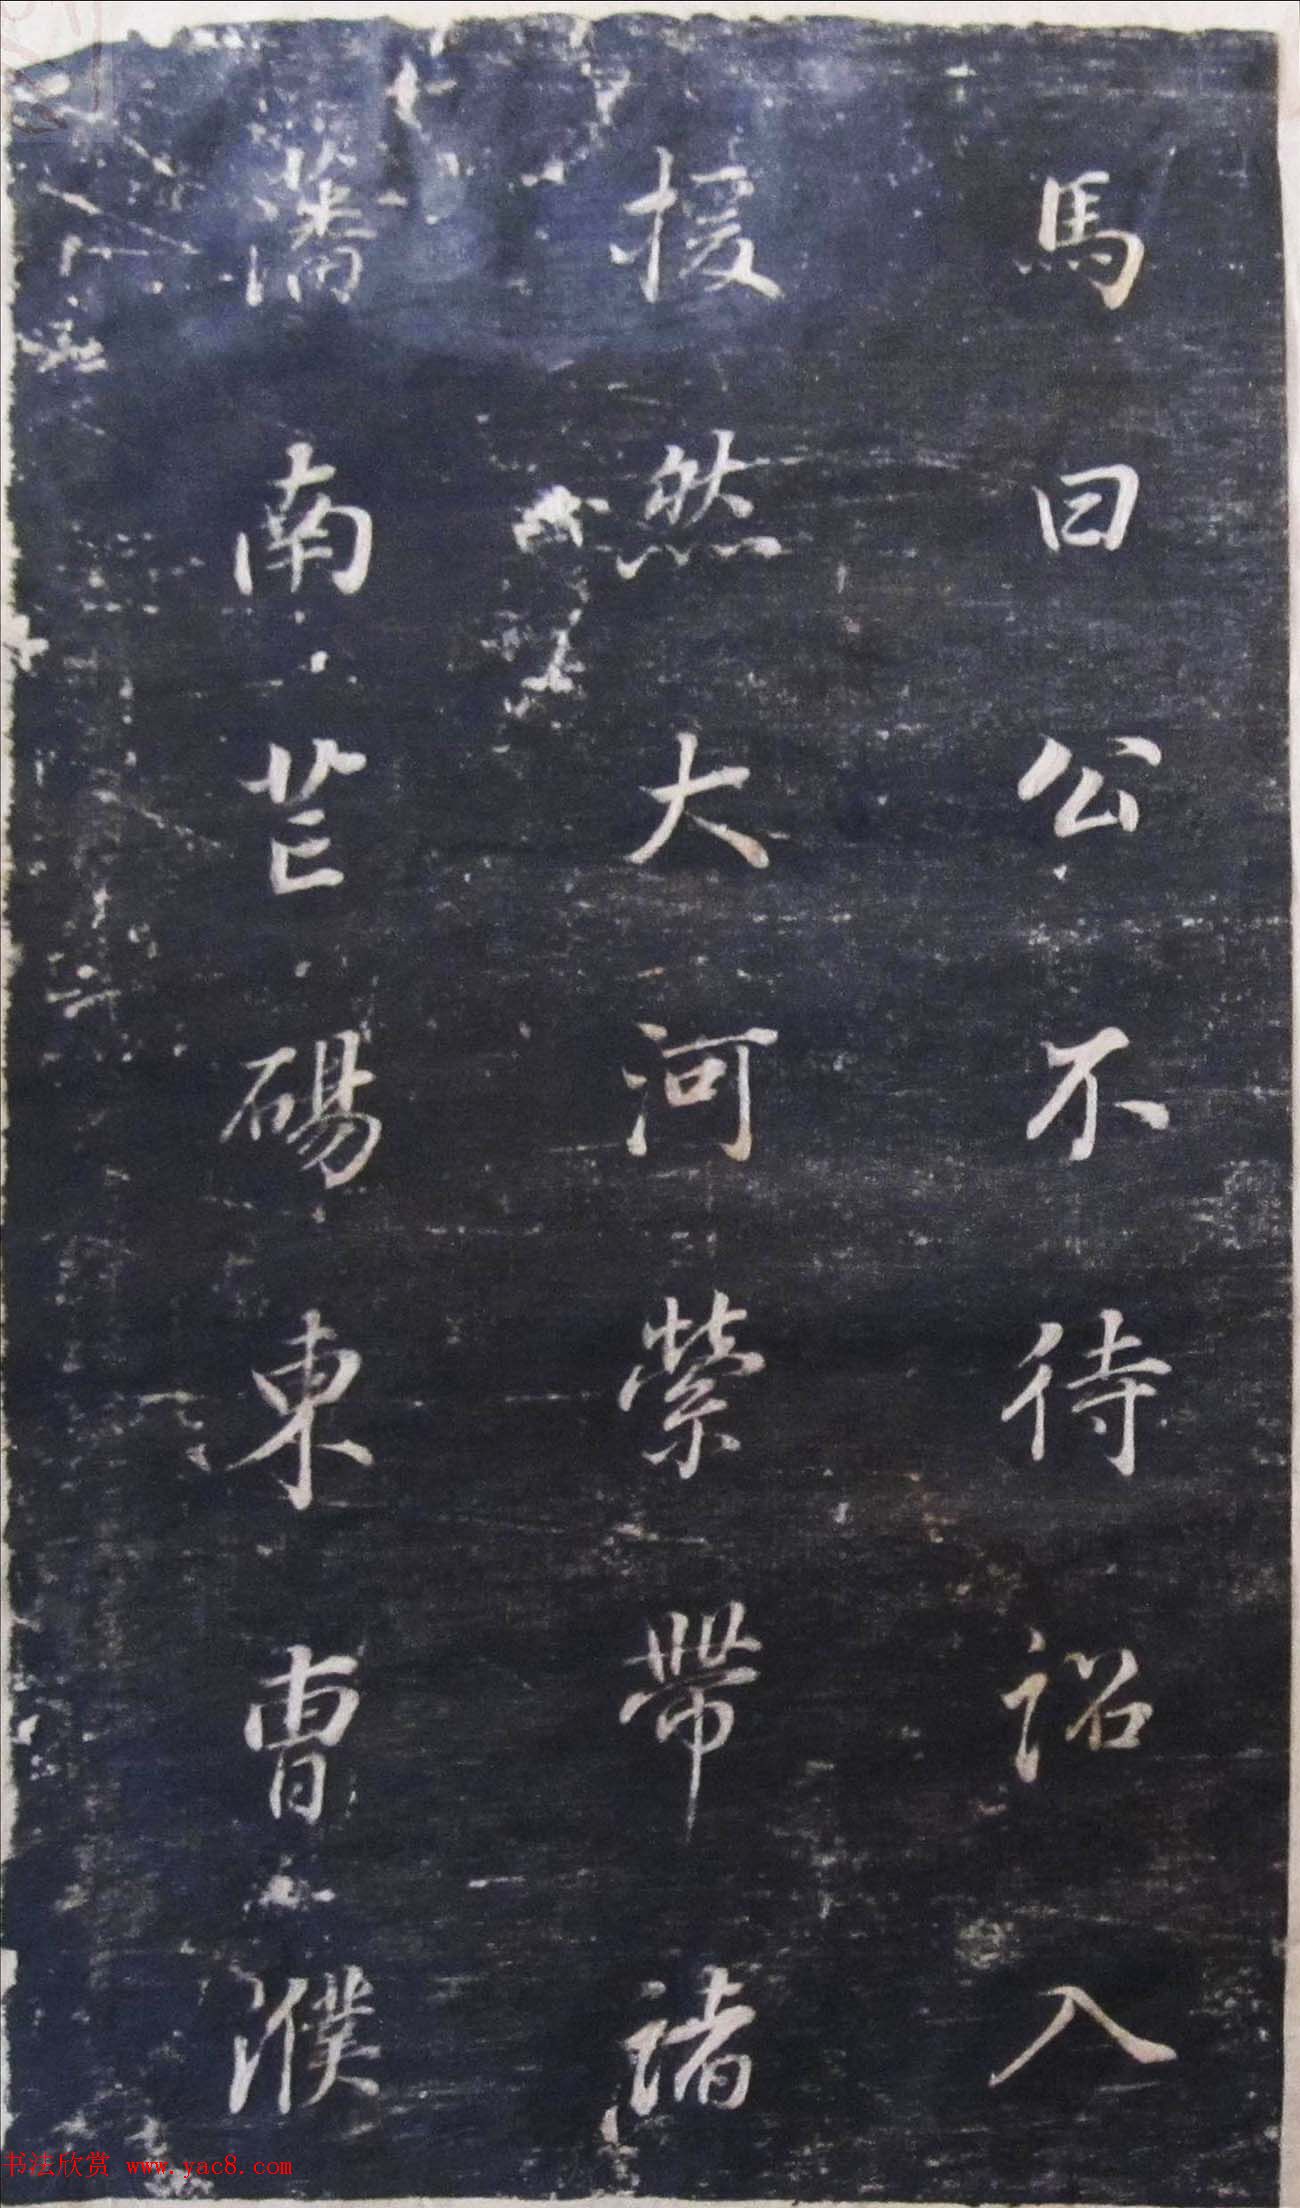 馬曰公不待詔入
援然大河縈帶諸
藩南芒碭東曹濮
书法欣赏 www.yac8.com